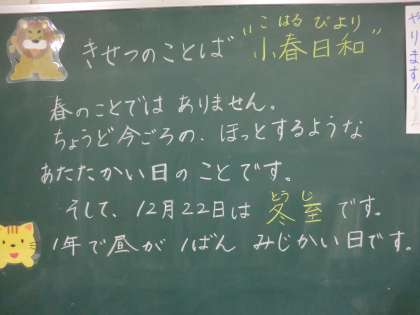 きせつのことば "小春日和"
こはるびより
春のことでは ありません。
ちょうど今ごろの、ほっとするような
あたたかい日のことです。
そして、12月22日は 冬至 です。
とうじ
1年で昼が 1ばん みじかい日です。
やります!!